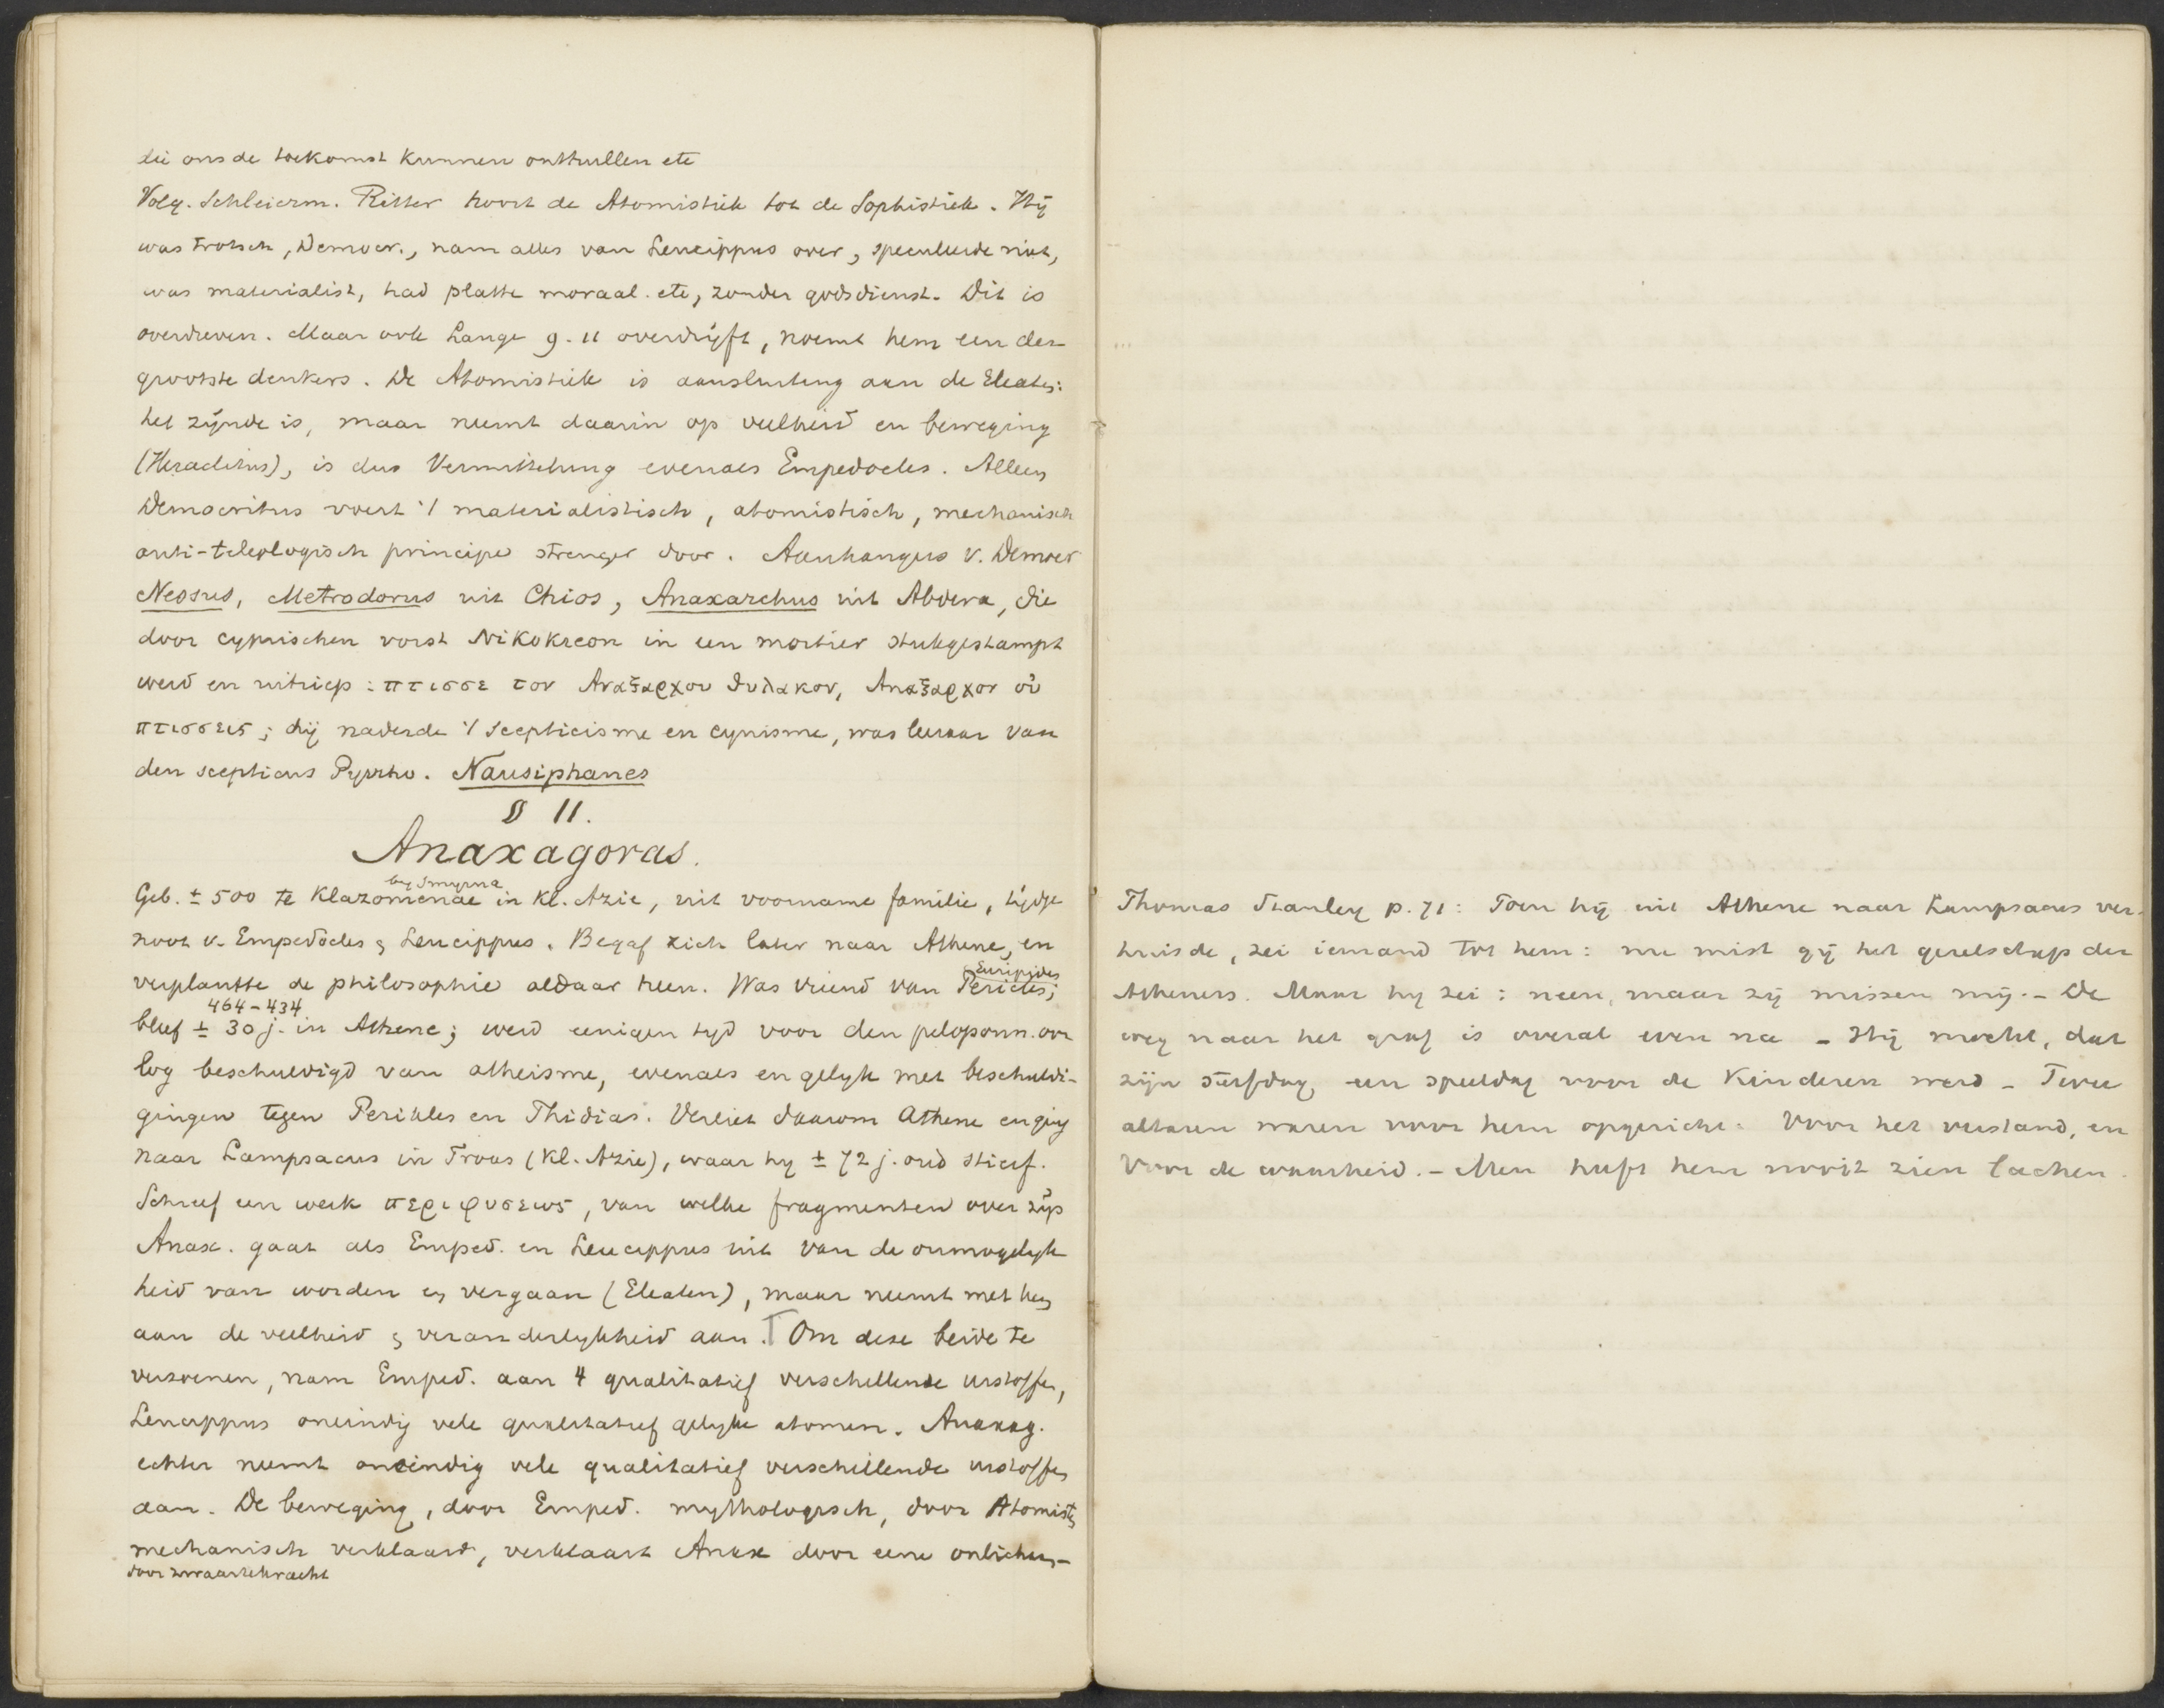 die ons de toekomst kunnen onthullen etc
Volg. Schleierm. Ritter hoort de Atomistiek tot de Sophistiek. Hij
was trotsch, Democr., nam alles van Leucippus over, speculeerde niet,
was materialist, had platte moraal. etc, zonder godsdienst. Dit is
overdreven. Maar ook Lange g. 11 overdrijft, noemt hem een der
grootste denkers. De Atomistiek is aansluiting aan de Eleaten:
het zijnde is, maar neemt daarin op veelheid en beweging
(Heraclitus), is dus Vermittelung evenals Empedocles. Alleen
Democritus voert 't materialistisch, atomistisch, mechanisch
anti-teleologisch principe strenger door. Aanhangers v. Democr
Nessus, Metrodorus uit Chios, Anaxarchus uit Abdera, die
door cyprischen vorst Nikokreon in een mortier stukgestampt
werd en uitriep: πτισσε τον Αναξαρχου θυλακον, Αναξαρχον οὐ
πτισσεις; hij naderde 't scepticisme en cynisme, was leeraar van
den scepticus Pyrrho. Nausiphanes
§ 11.
Anaxagoras.
by Smyrna
Geb. ± 500 te Klazomenae in Kl. Azie, uit voorname familie, tijdge
noot v. Empedocles & Leucippus. Begaf zich later naar Athene, en
Euripides
verplantte de philosophie aldaar heen. Was vriend van Pericles;
464-434
bleef ± 30 j. in Athene; werd eenigen tyd voor den peloponn. oor
log beschuldigd van atheisme, evenals en gelyk met beschuldi-
gingen tegen Perikles en Phidias. Verliet daarom Athene en ging
naar Lampsacus in Troas (Kl. Azie), waar hy ± 72 j. oud stierf.
Schreef een werk περι φυσεως, van welke fragmenten over zijn
Anax. gaat als Emped. en Leucippus uit van de onmogelyk
heid van worden en vergaan (Eleaten), maar neemt met hen
aan de veelheid & veranderlykheid aan. Om deze beide te
verzoenen, nam Emped. aan 4 qualitatief verschellende urstoffen,
Leucippus oneindig vele qualitatief gelyke atomen. Anaxag.
echter neemt oneindig vele qualitatief verschellende urstoffen
aan. De beweging, door Emped. mythologisch, door Atomisten
mechanisch verklaard, verklaart Anax door eene onlichem-
door zwaartekracht
Thomas Stanley p. 71: Toen hij uit Athene naar Lampsacus ver-
huisde, zei iemand tot hem: nu mist gij het gezelschap der
Atheners. Maar hy zei: neen, maar zij missen mij. - De
weg naar het graf is overal even na - Hij mocht, dat
zijn sterfdag een speeldag voor de kinderen werd - Twee
altaren waren voor hem opgericht: Voor het verstand, en
Voor de waarheid. - Men heeft hem nooit zien lachen.